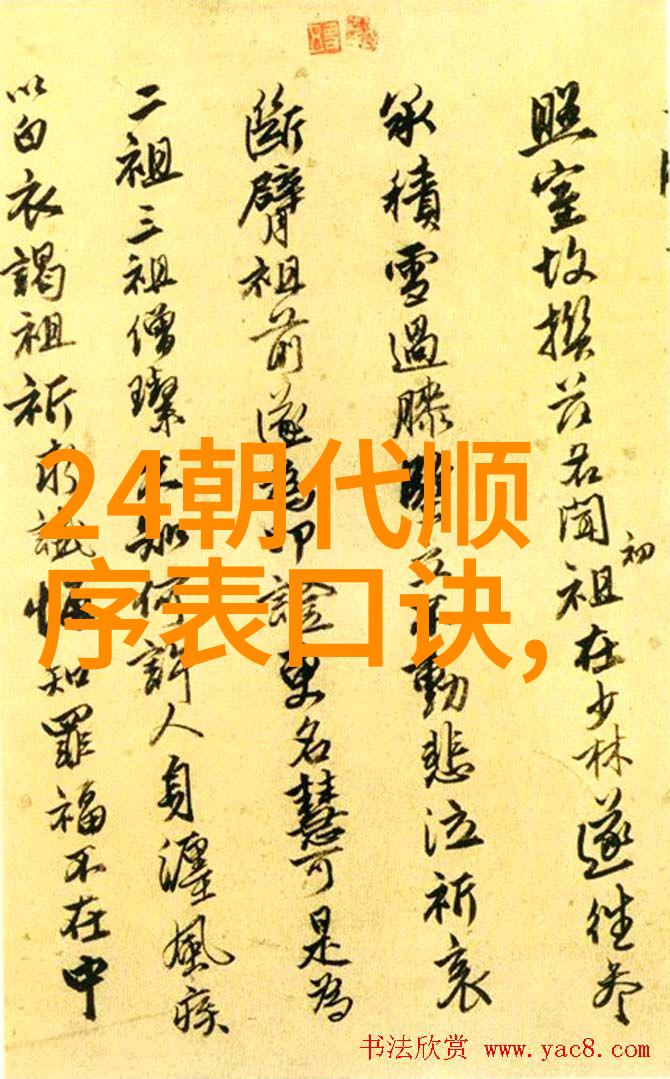 照室故撰茲名聞初祖在少林遂往參
承積雪過膝堅立不動悲泣祈哀
斷臂祖前遂為印證更名慧可是為
二祖三祖僧璨不知何許人身纏風疾
以白衣謁祖祈求懺悔知罪福不在中
24朝代顺
序表口诀,
书法欣赏 www.yac8.com